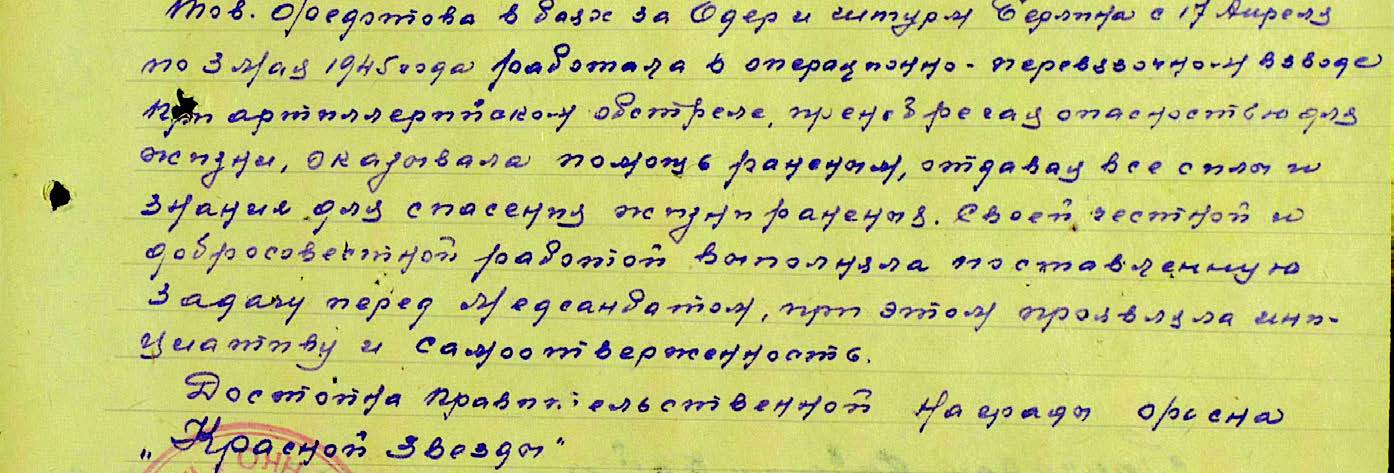 Тов. Федотова в боях за Одер и штурм Берлина с 17 Апреля
по 3 мая 1945 года работала в операционно-перевязочном взводе
При артиллерийском обстреле, пренебрегая опасностью для
жизни, оказывала помощь раненым, отдавая все силы и
знания для спасения жизни раненых. Своей честной и
добросовестной работой выполняла поставленную
задачу перед медсанбатом, при этом проявляла ини-
циативу и самоотверженность.
Достойна правительственной награды ордена
„Красной Звезды"
ОНН